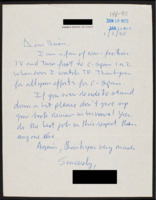 Dear Brian,
I am a fan of non-fiction
TV and turn first to C-Span 1 or 2
whenever I watch TV. Thank you
for all your efforts for C-Span.
If you ever decide to
down a bit please don't give up
your book review interviews! You
do the best job in this respect than
anyone else.
Again, thank you very much.
Sincerely,